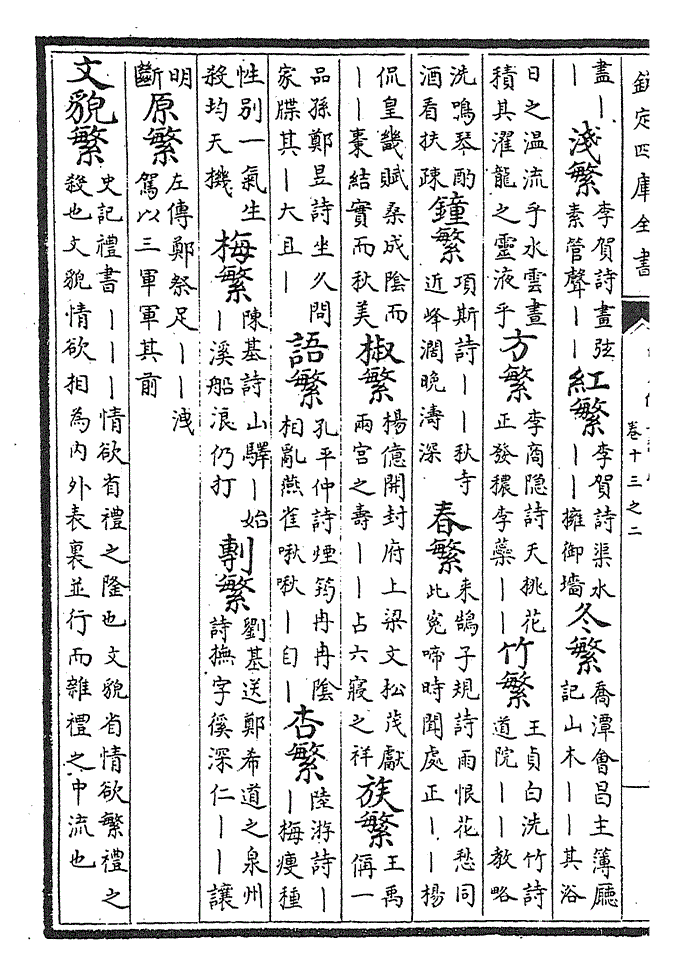 欽定四庫全書
卷十三之二
畫｜｜淺繁李賀詩畫弦素管聲｜｜紅繁李賀詩渠水｜｜擁御墻冬繁喬潭會昌主簿廳記山木｜｜其浴
日之温流乎水雲畫積其濯龍之靈液乎方繁李商隐詩天桃花正發穠李蘂｜｜竹繁王貞白洗竹詩道院｜｜教略
洗鳴琴酌酒看扶疎鐘繁項斯詩｜｜秋寺近峰濶晚濤深春繁来鵠子規詩雨恨花愁同此寃啼時聞處正｜｜楊
侃皇畿賦桑成陰而｜｜棗結實而秋美椒繁楊億開封府上梁文松茂獻兩宫之壽｜｜占六寢之祥族繁王禹偁一
品孫鄭昱詩坐久問家牒其｜大且｜語繁孔平仲詩煙筠冉冉陰相亂燕雀啾啾｜自｜杏繁陸游詩｜｜梅瘦種
性别一氣生殺均天機梅繁陳基詩山驛｜始｜溪船浪仍打剸繁劉基送鄭希道之泉州詩撫字徯深仁｜｜讓
明斷原繁左傳鄭祭足｜｜洩駕以三軍軍其前
文貌繁史記禮書｜｜｜情欲省禮之隆也文貌省情欲繁禮之殺也文貌情欲相為内外表裏並行而雜禮之中流也